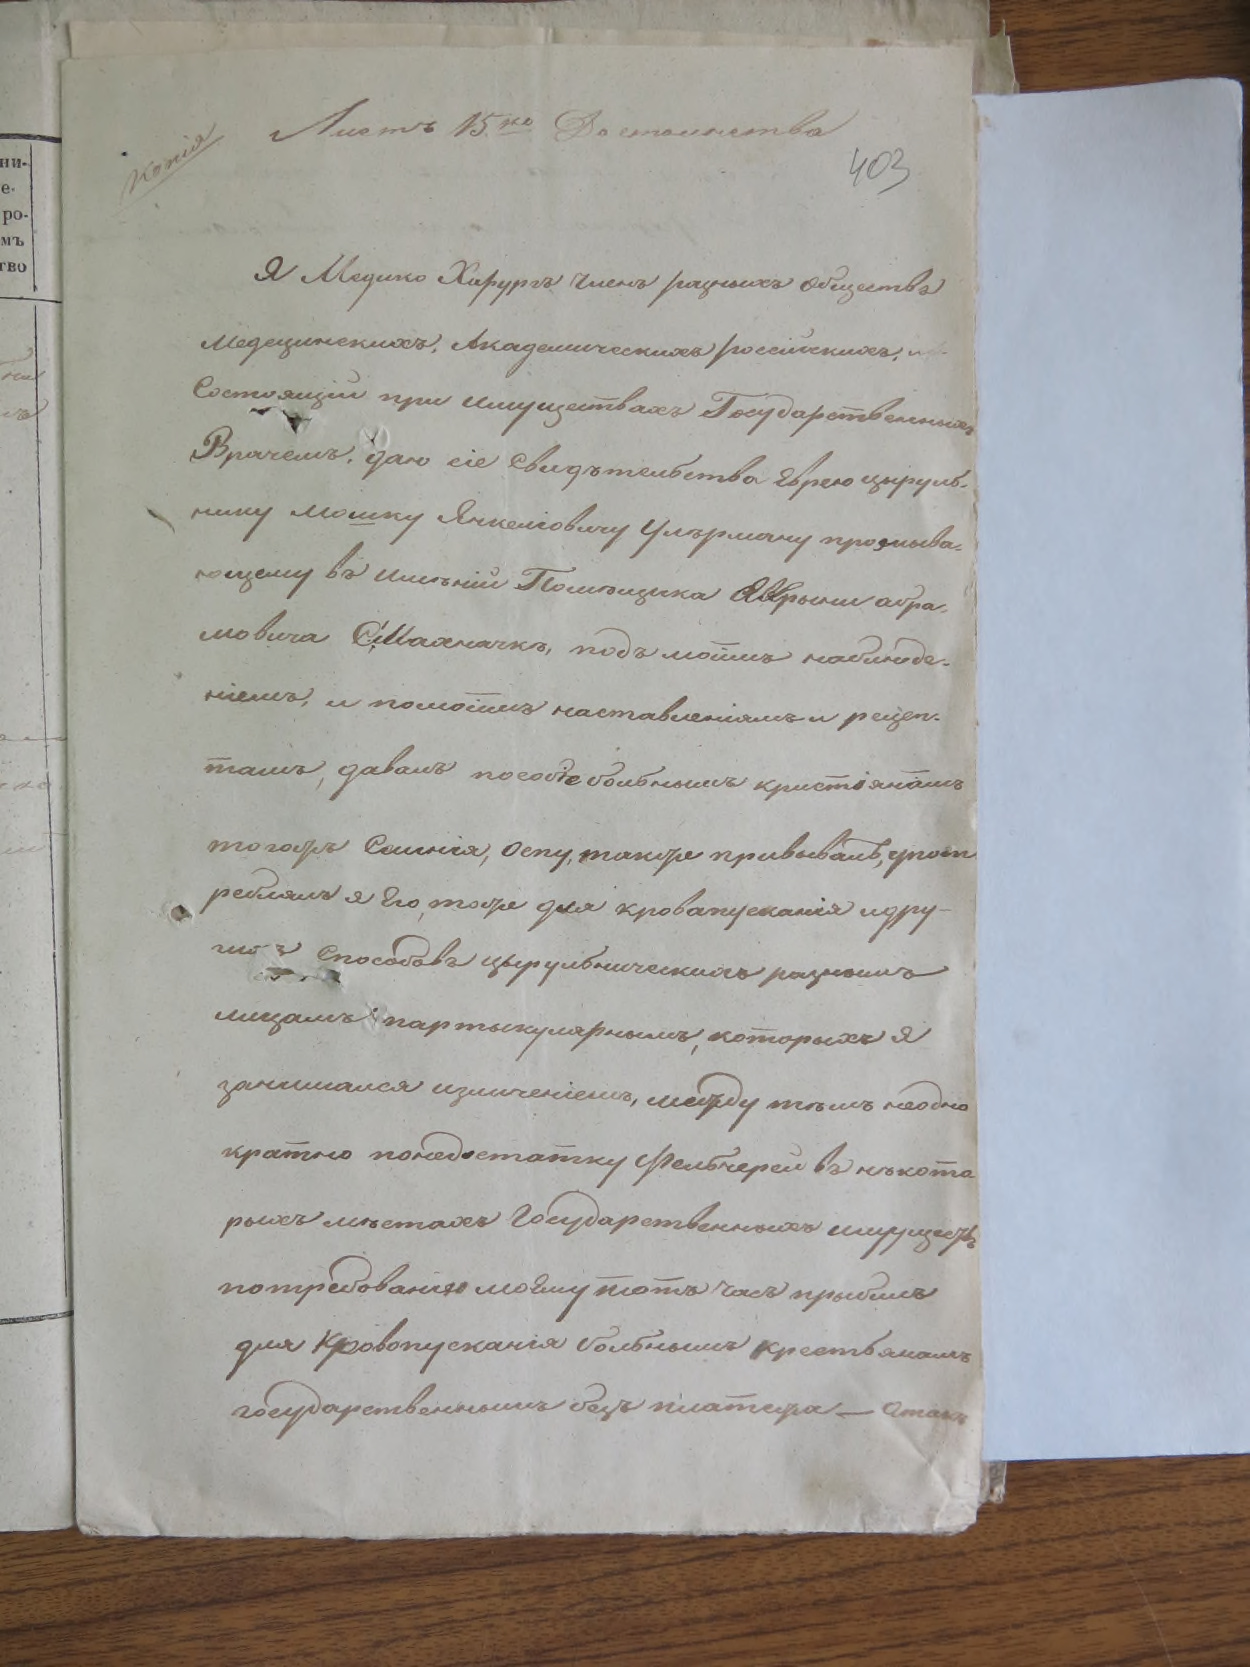 Листъ 15.ко Достоинства
Копія
403
Я Медико Хирургъ Членъ разныхъ обществъ
Медецинскихъ, Академическихъ россійскихъ,
Состоящій при имуществахъ Государственныхъ
Врачемъ. даю сіе Свидѣтельства Еврею цыруль-
нику Мошку Янкеліовичу Ульрману прозыва-
ющему въ имѣніи Помѣщика абра-
мовича С. Махначкѣ, подъ моимъ наблюде-
ніемъ, и по моимъ наставленіямъ и рецеп-
тамъ, давалъ пособіе больнымъ кристіянамъ
тогожъ Имѣнія, Оспу, также прививалъ, упот
реблялъ я Его, тоже для кровапусканія идру-
гихъ Способовъ цырульническихъ разнымъ
лицамъ партыкулярнымъ, которыхъ я
занимался изличеніемъ, между тѣмъ неодно
кратно понедостатку Фельчерей въ нѣкото
рыхъ мѣстахъ Государственныхъ имуществъ
потребованію моему тотъ часъ прыбылъ
для Кровопусканія больнымъ крестьянамъ
государственнымъ безъ платежа —
ни-
е-
ро-
мъ
тво